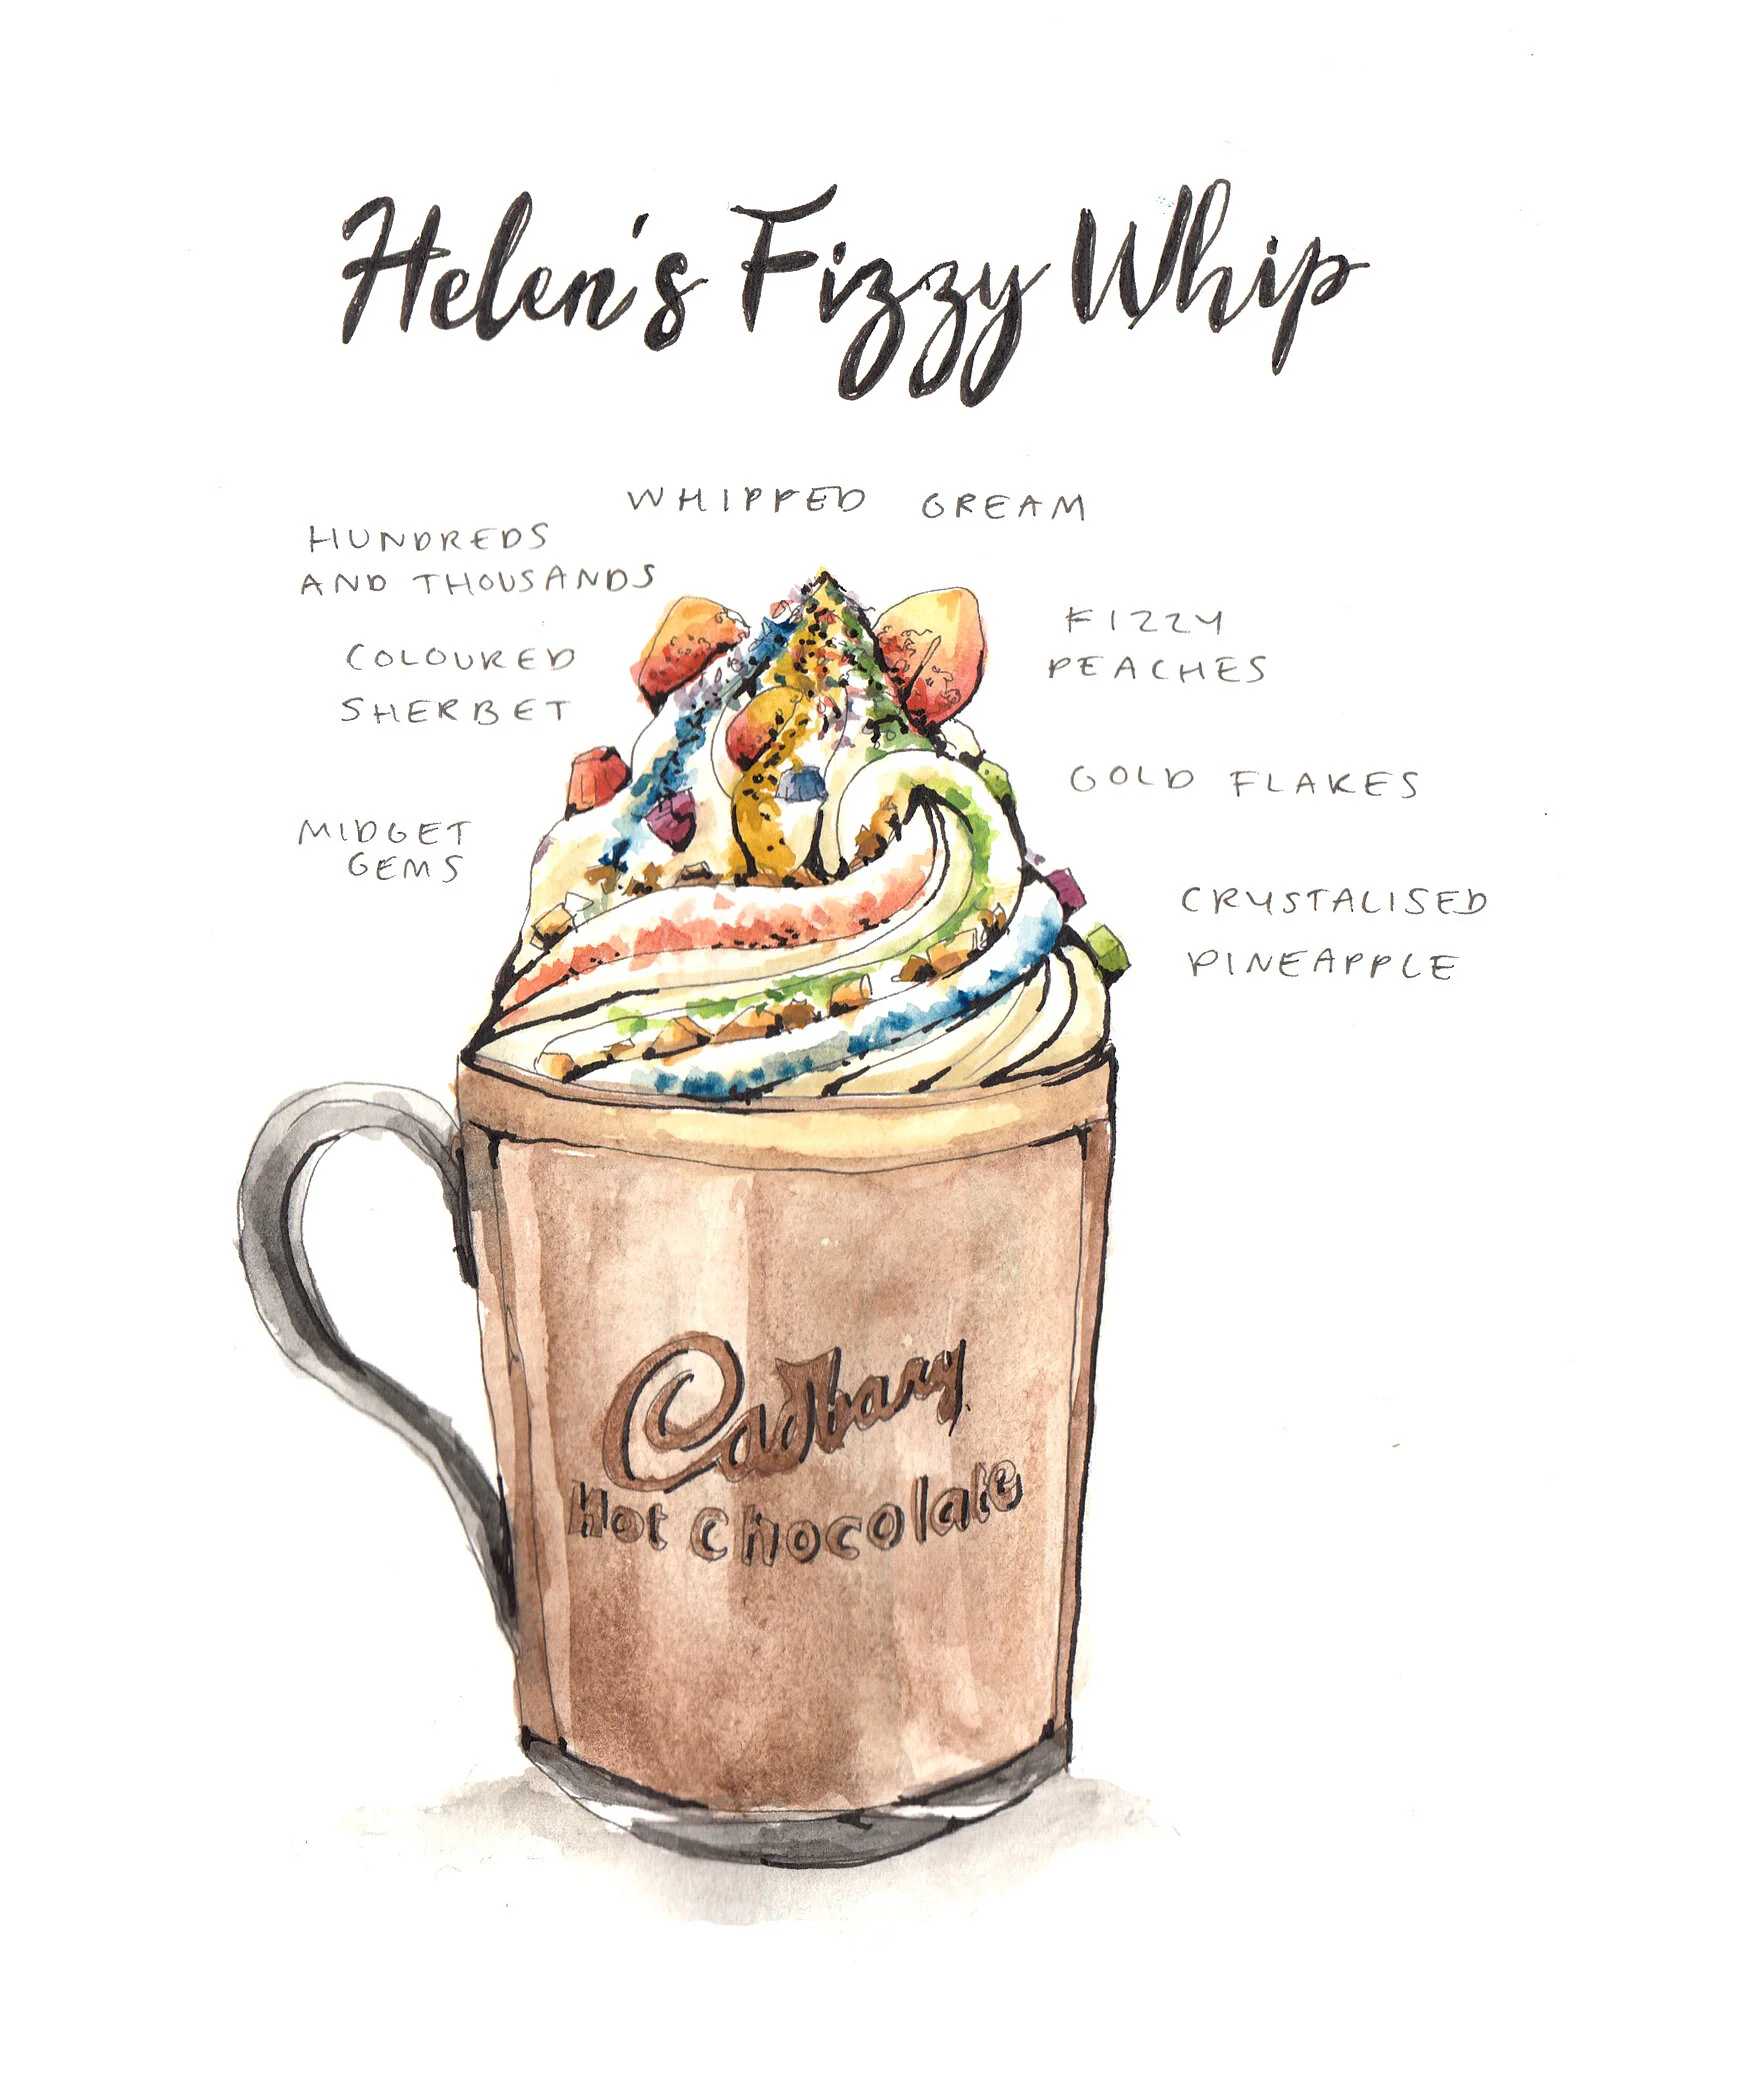 Helen's Fizzy Whip
WHIPPED CREAM
HUNDREDS
AND THOUSANDS
COLOURED
SHERBET
MIDGET
GEMS
FIZZY
PEACHES
GOLD FLAKES
CRYSTALISED
PINEAPPLE
Cadbury
Hot Chocolate